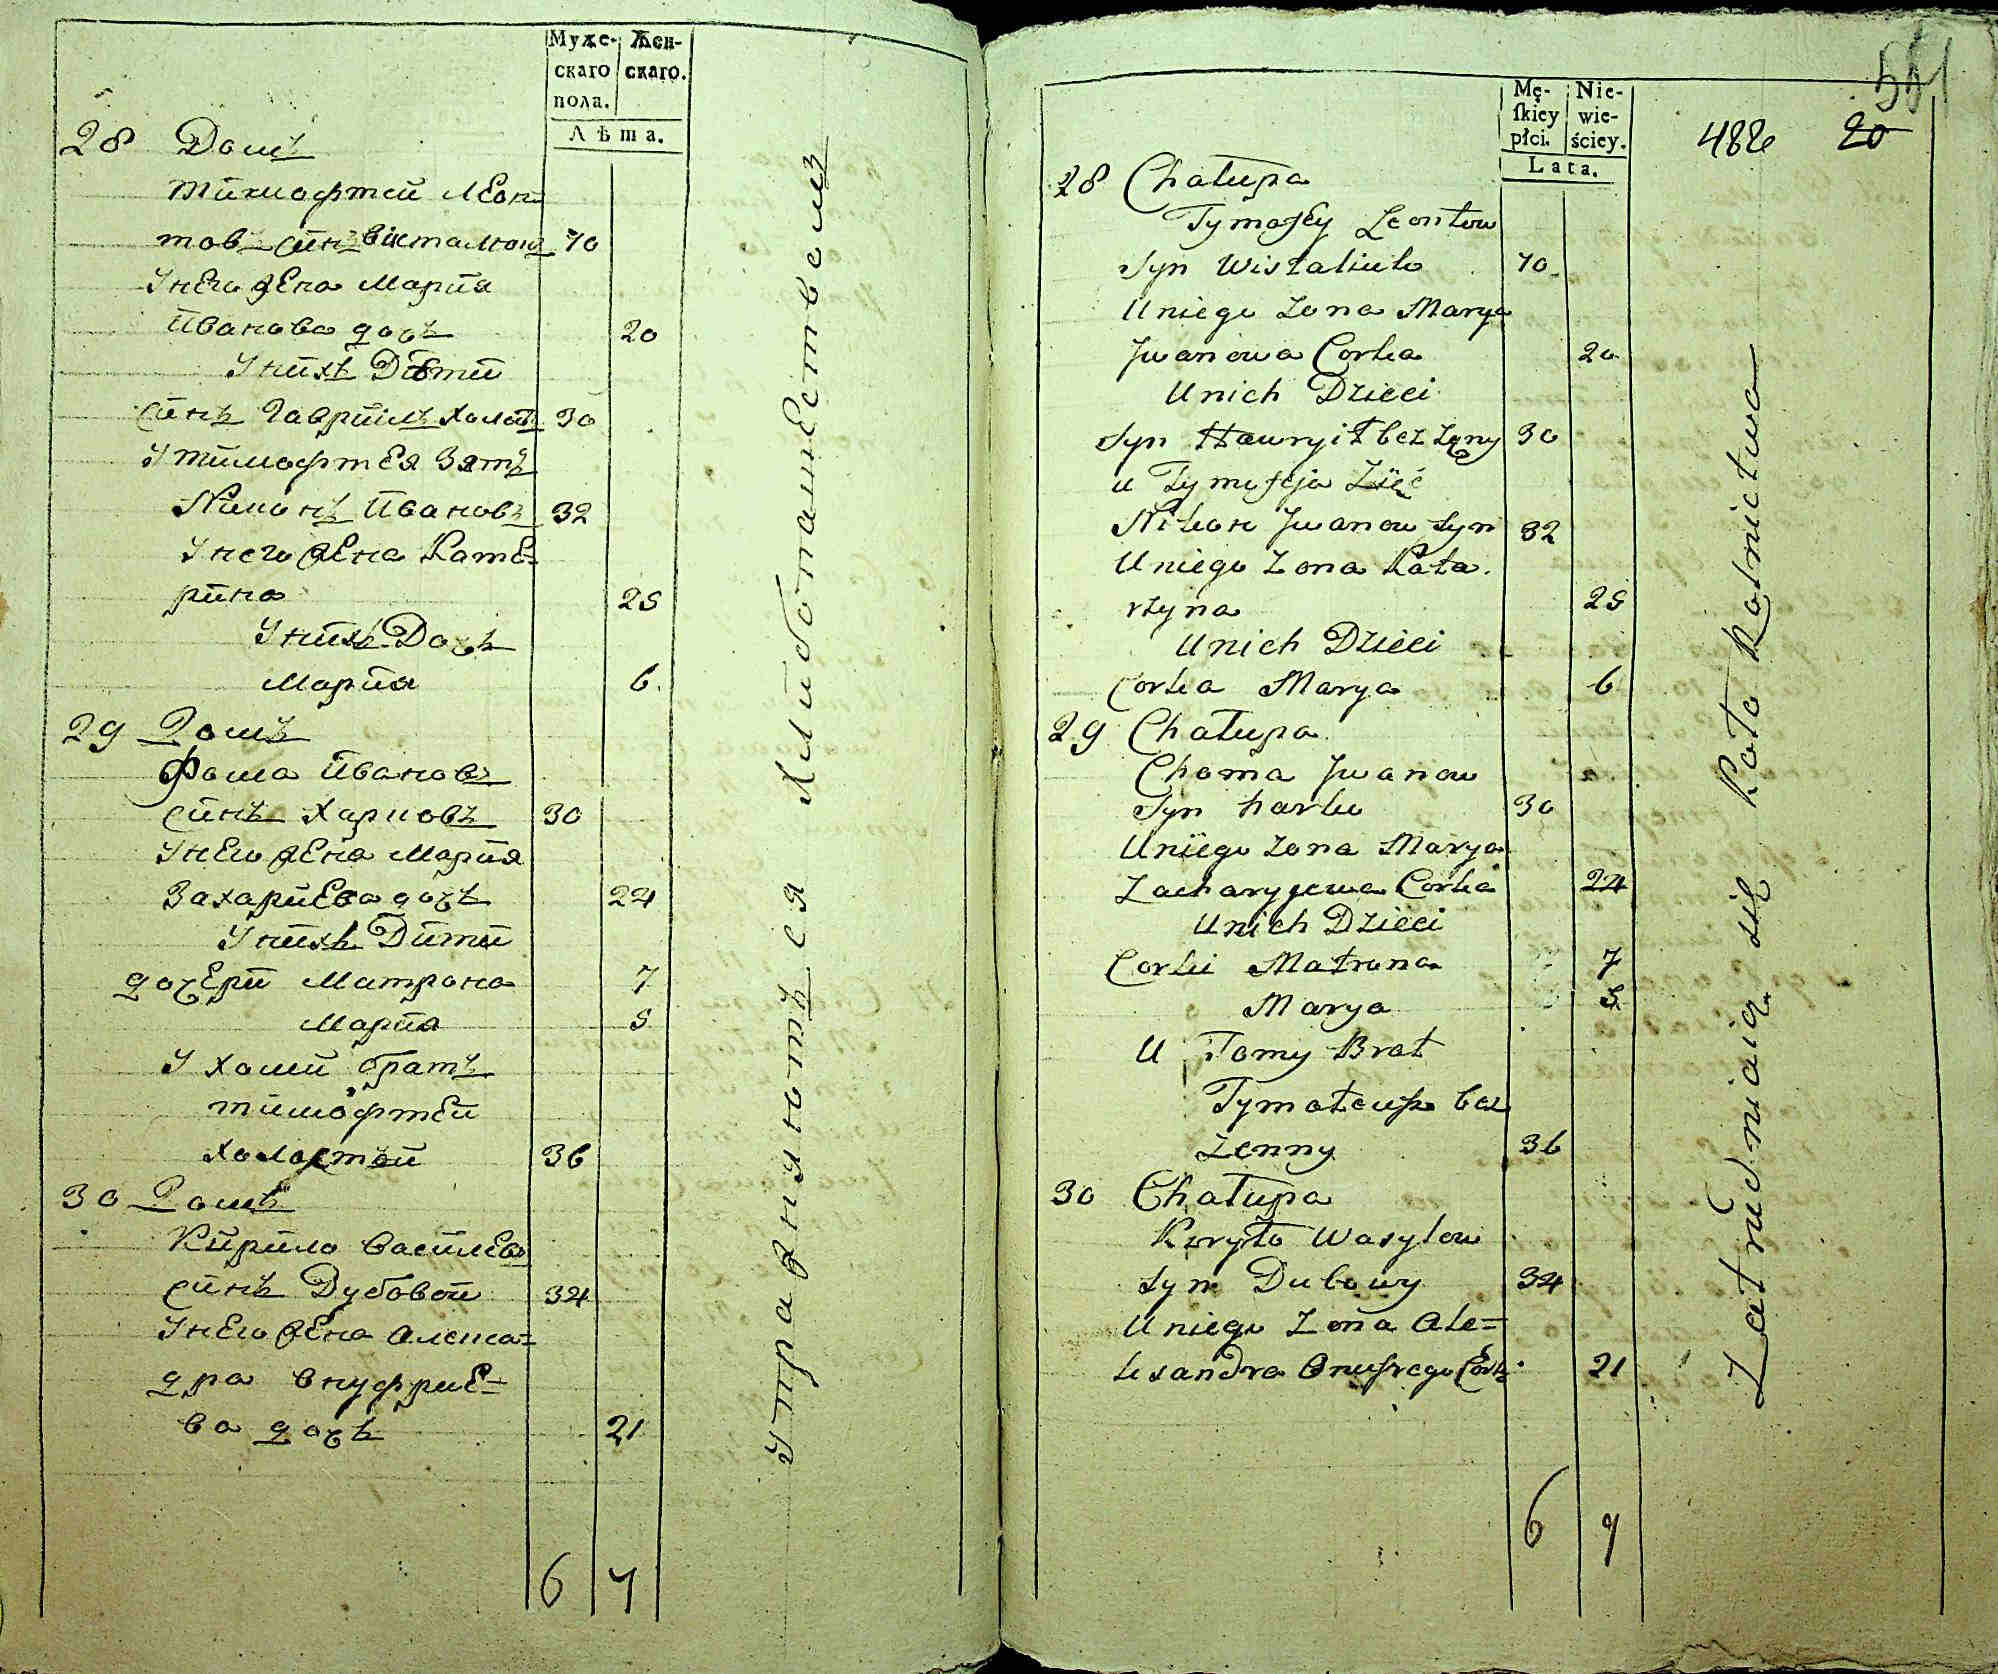 Муже- Жен-
скаго скаго.
пола.
Лѣта.
28 Домъ
Тимофтей Леон
тов синъ 70
У него жена Мария
Иванова дочъ 20
У нихъ Дѣти
синъ Гаврiилъ холост 30
У тимофтея Зятъ
Никонъ Ивановъ 32
У него жена Кате-
рина 25
У нихъ Дочъ
Мария 6
29 Домъ
Фома Ивановъ
синъ Харковъ 30
У него жена Мария
Захариева дочъ 24
У нихъ Дити
дочери Матрона 7
Мария 5
У хоми братъ
тимофтей
холостой 36
30 Домъ
Кирило Василевъ
синъ Дубовой 34
У него жена Алекса=
дра Внуфрие=
ва дочъ 21
6 7
Упражняютъся хлибопашественъ
Mę- Nie-
ſkiey wie-
płci. ściey.
Lata.
482 20
28 Chałupa
Tymofey Leontow
Syn 70
U niego Zona Marya
Jwanowa Corka 20
U nich Dzieci
Syn Hawryił bez żony 30
u Tymofeja Zięć
Nikon Jwanow Syn 32
U niego Zona Kata
rzyna 25
U nich Dzieci
Corka Marya 6
29 Chałupa
Choma Jwanow
Syn harko 30
U niego Zona Marya
Zacharyjewa Corka 24
U nich Dzieci
Corki Matrona 7
Marya 5
U Tomy Brat
Tymoteusz bez
Zenny 36
30 Chałupa
Kiryło Wasylow
Syn Dubowy 34
U niego Zona Ale=
ksandra Onufrego Cork 21
6 7
Zatrudniaią się koło Rolnictwa